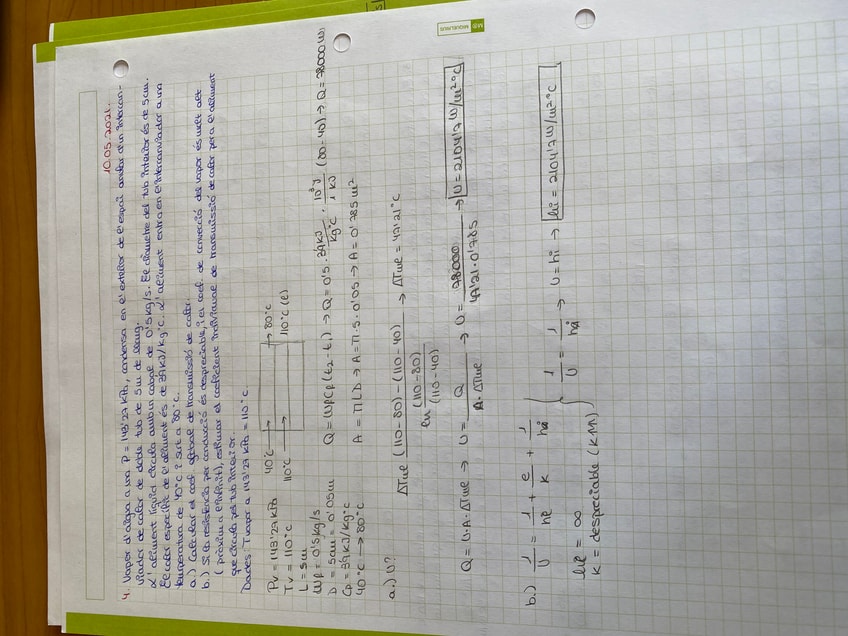 10.05.2021.
4. Vapor d'aigua a una P = 143'27 kPa, condensa en l'exterior de l'espai anular d'un intercan-
viador de calor de doble tub de 5 m de llarg.
L'aliment líquid circula amb un cabal de 0'5 kg/s. El diàmetre del tub interior és de 5 cm.
El calor específic de l'aliment és de 3'9 kJ/kg·°C. L'aliment entra en l'intercanviador a una
temperatura de 40°C i surt a 80°C.
a.) Calcular el coef. global de transmissió de calor.
b.) Si la resistència per conducció és despreciable, i el coef. de convecció del vapor és molt alt
(pròxim a l'infinit), estimar el coeficient individual de transmissió de calor per a l'aliment
que circula pel tub interior.
Dades: T vapor a 143'27 kPa = 110°C
Pv = 143'27 kPa
Tv = 110°C
L = 5m
Wf = 0'5 kg/s
D = 5cm = 0'05m
Cp = 3'9 kJ/kg·°C
40°C → 80°C
40°C → → 80°C
110°C → 110°C (l)
Q = Wf Cp (t2 - t1) → Q = 0'5 · 3'9 kJ/kg°C · 10³J/1 kJ (80 - 40) → Q = 78000 (W)
A = π L D → A = π · 5 · 0'05 → A = 0'785 m²
a.) U?
ΔTml (110 - 80) - (110 - 40) / ln (110 - 80)/(110 - 40) → ΔTml = 47'21°C
Q = U · A · ΔTml → U = Q / A · ΔTml → U = 78000 / 47'21 · 0'785 → U = 2104'7 W/m²°C
b.) 1/U = 1/he + e/k + 1/hi
he = ∞
k = despreciable (k↑↑↑)
1/U = 1/hi → U = hi → hi = 2104'7 W/m²°C
MIQUELRIUS